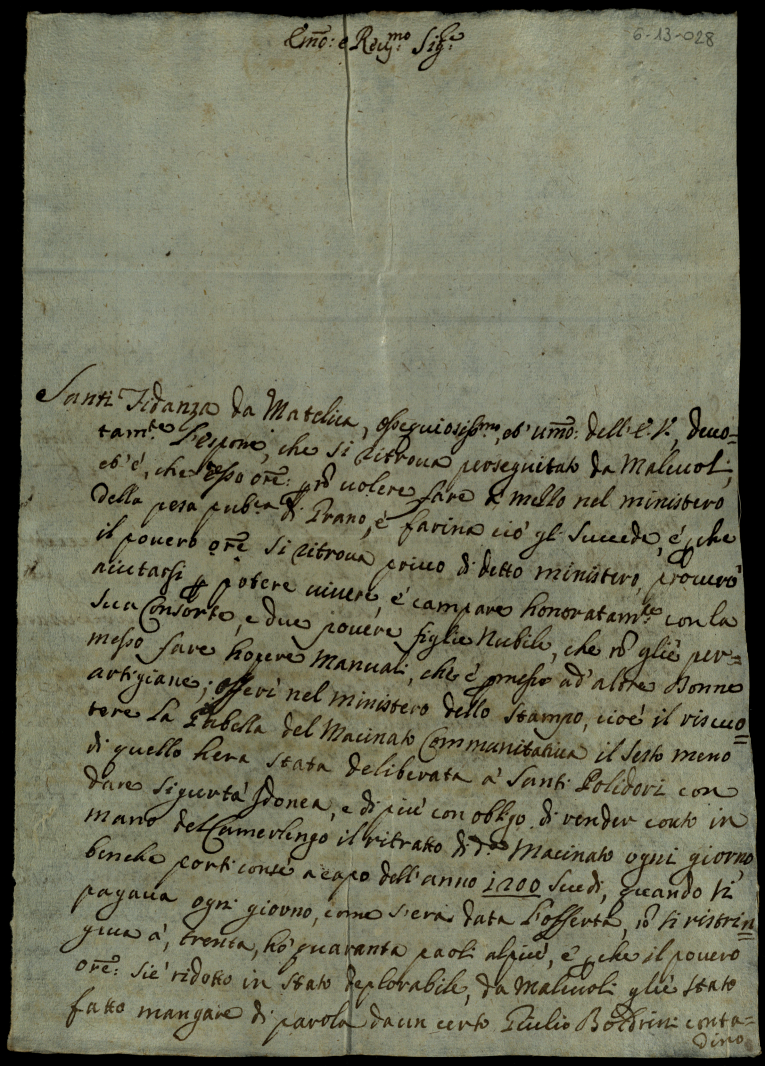 6-13-028
Emo: e Reumo Sigre
Santi Fidanza da Matelica, ossequiosissmo, et umo: dell'E. V., deuo=
tamte l'espone, che si ritroua perseguitato da Maleuoli,
et è, che esso ore: nō uolere fare a mello nel ministero
della pesa pubca di Grano, è farina ciò gli succede, è perche
il pouero ore si ritroua priuo di detto ministero, procurò
aiutarsi per potere uiuere, è campare honoratamte con la
sua Consorte, e due pouere figlie Nubile, che nō gliè per=
messo fare hopere Manuali, che è pmesso ad' altre Donne
artigiane; offerì nel ministero dello stampo, cioè il riscuo=
tere la Gabella del Macinato Communitatiua il sesto meno
di quello hera stata deliberata à Santi Polidori con
dare sigurtà Idonea, e di più con obligo di render conto in
mano del Camerlengo il ritratto di do Macinato ogni giorno
benche porti conse a capo dell'anno 1200 scudi, quando si
pagaua ogni giorno, come s'era data l'offerta, nō si ristrin=
giua à, trenta, hò quaranta paoli alpiù, è perche il pouero
ore: siè ridotto in stato deplorabile, da maleuoli gliè stato
fatto mangare di parola da un certo Giulio Boldrini conta=
dino